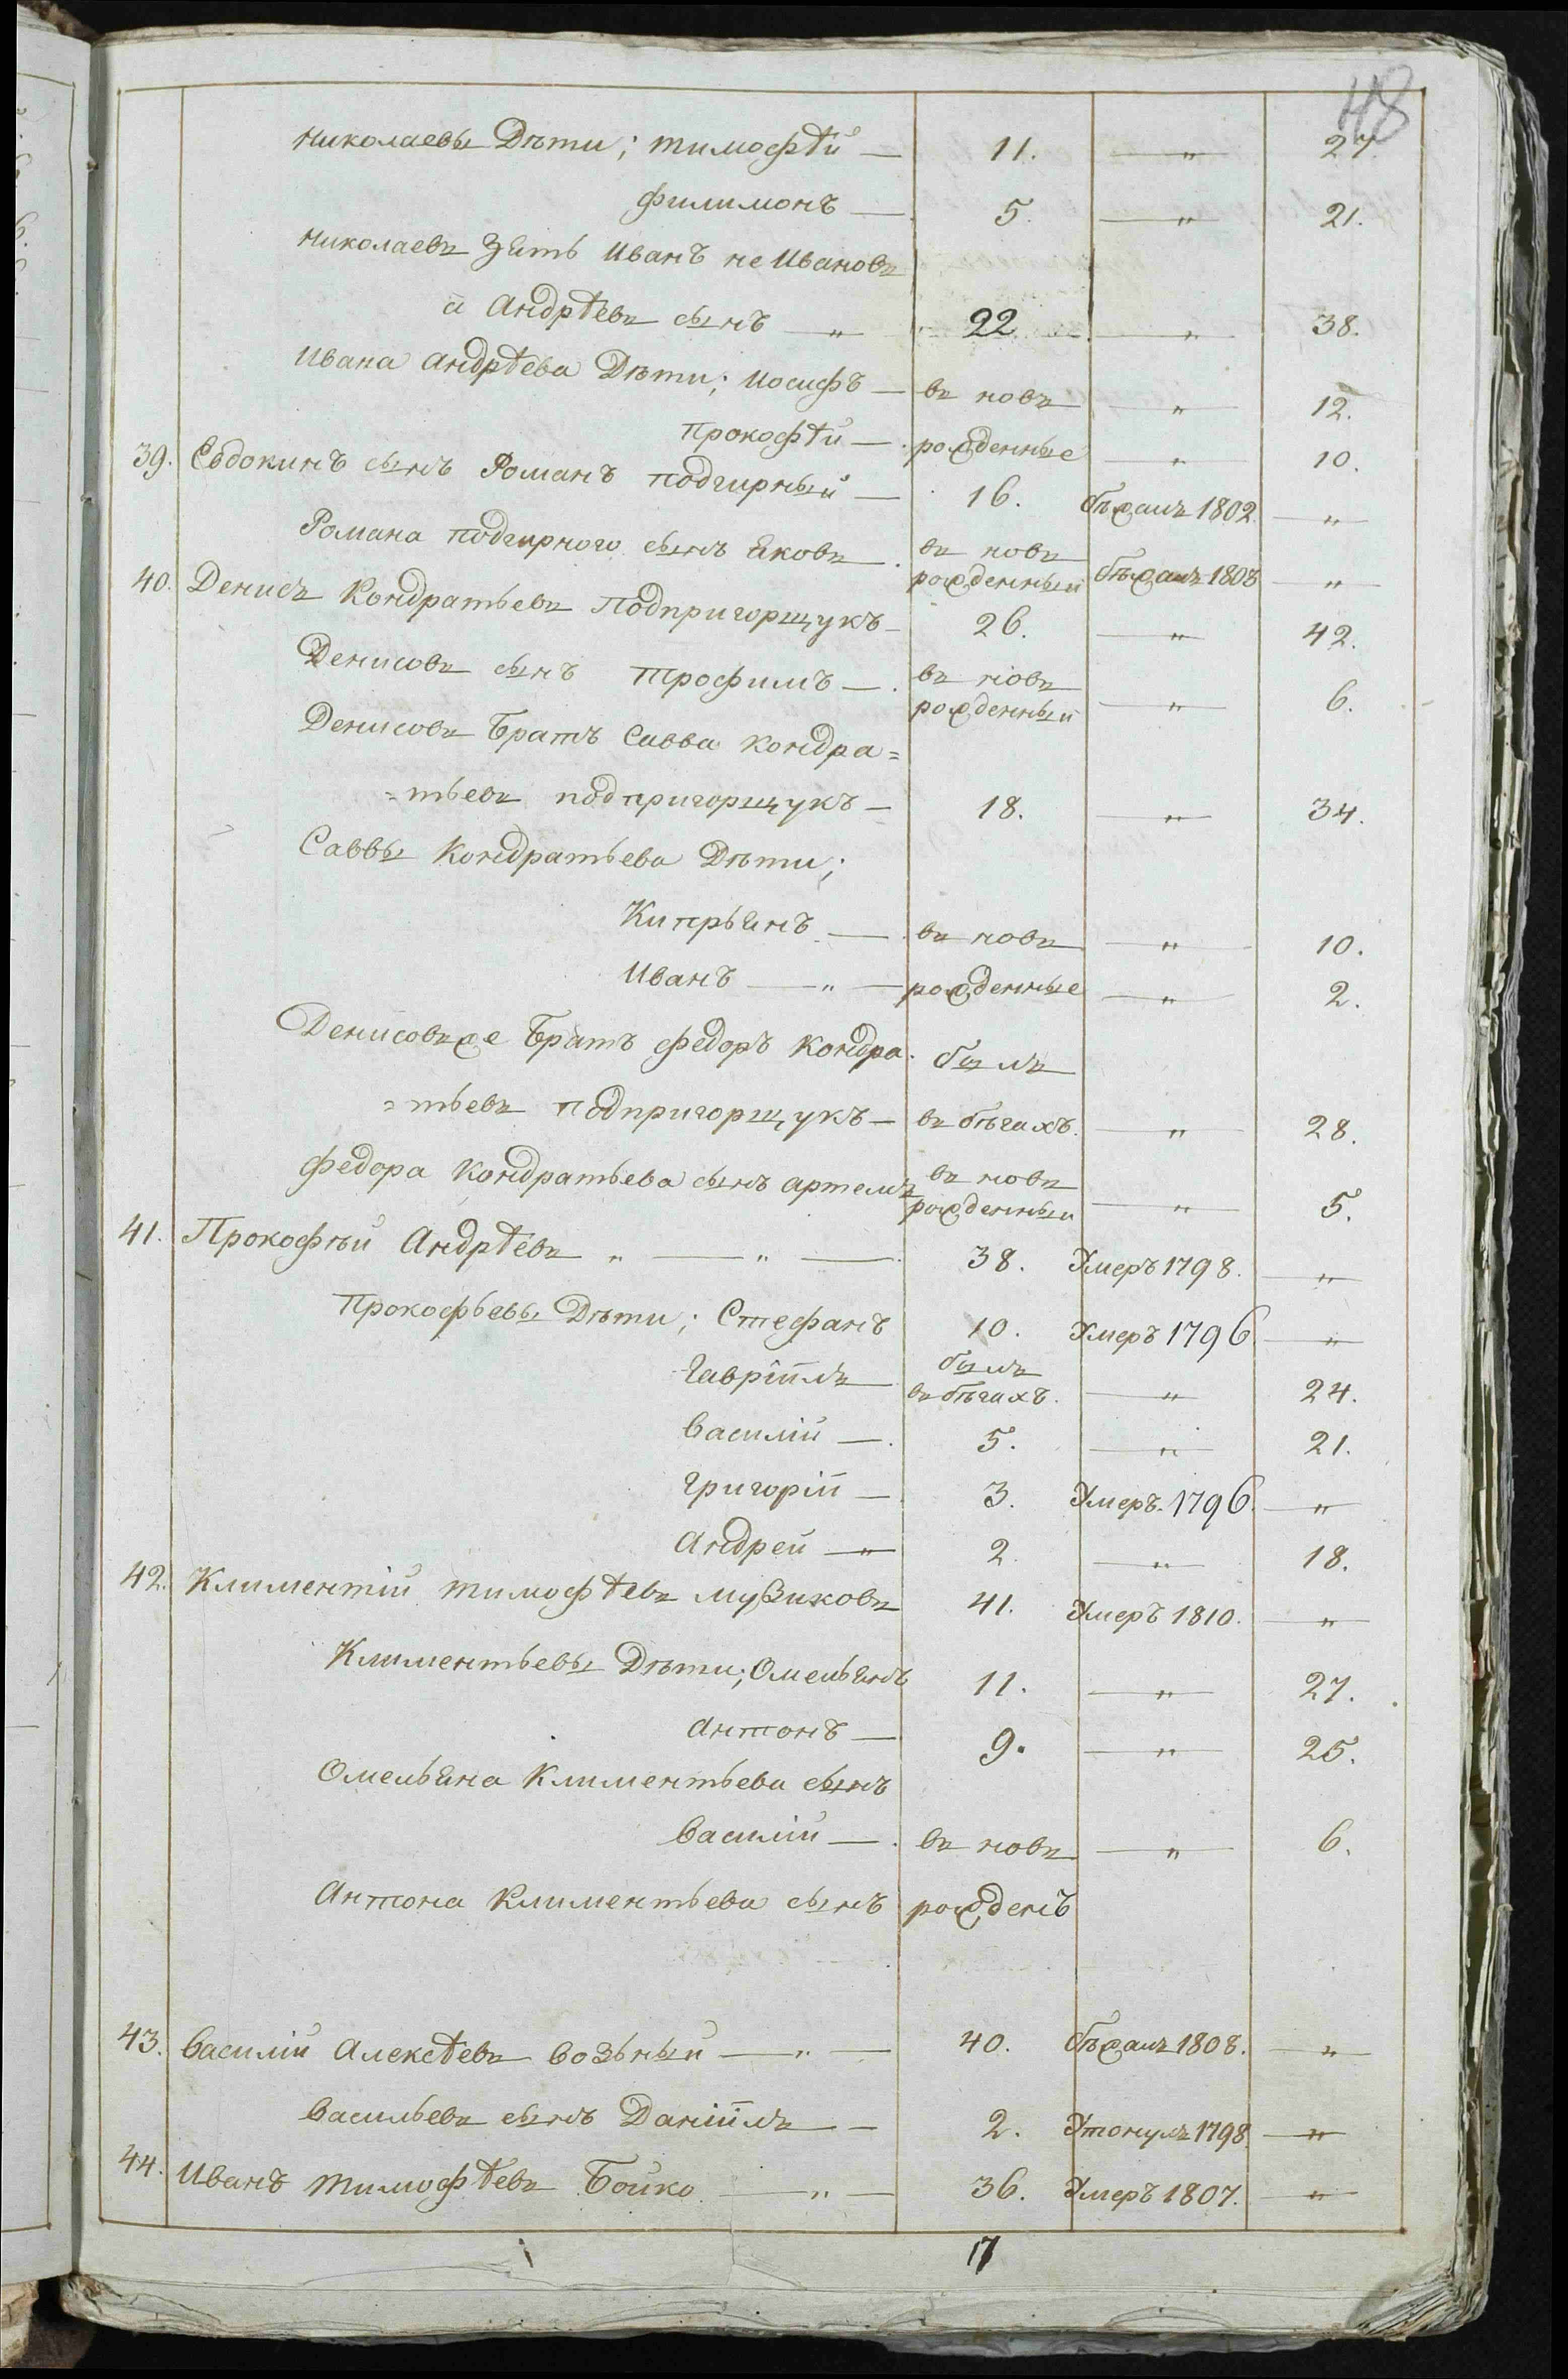 48
Николаевы Дѣти; тимофѣй — 11. — „ — 27.
филимонъ — 5. — „ — 21.
Николаевъ Зять Иванъ не Ивановъ
а Андрѣевъ сынъ — „ 22 — „ — 38.
Ивана Андрѣева Дѣти; Иосифъ — въ новь — „ — 12.
Прокофѣй — рожденные — „ — 10.
39. Евдокимъ сынъ Романъ подгирный — 16. бѣжалъ 1802. — „ —
Романа подгирного сынъ Яковъ въ новь рожденный бѣжалъ 1808 — „ —
40. Денисъ Кондратьевъ Подпригорщукъ — 26. — „ — 42.
Денисовъ сынъ трофимъ — въ новь рожденный — „ — 6.
Денисовъ Братъ Савва Кондра=
=тьевъ подпригорщукъ — 18. — „ — 34.
Саввы Кондратьева Дѣти;
Кипрьянъ — въ новь — „ — 10.
Иванъ — „ — рожденные — „ — 2.
Денисовъже Братъ федоръ Кондра. былъ
=тьевъ подпригорщукъ — въ бѣгахъ. — „ — 28.
федора Кондратьева сынъ артемъ въ новь рожденный — „ — 5.
41. Прокофѣй Андрѣевъ „ — „ — 38. Умеръ 1798. — „ —
Прокофьевы Дѣти; Стефанъ 10. Умеръ 1796 — „ —
Гавріилъ былъ въ бѣгахъ. — „ — 24.
Василій — 5. — „ — 21.
Григорій — 3. Умеръ. 1796. — „ —
Андрей — „ 2. — „ — 18.
42. Климентій тимофѣевъ музиковъ 41. Умеръ 1810. — „ —
Климентьевы Дѣти; Омельянъ 11. — „ — 27.
Антонъ — 9. — „ — 25.
Омельяна Климентьева сынъ
Василій — въ новь — „ — 6.
Антона Климентьева сынъ рожденъ
43. Василій Алексѣевъ возьный — „ — 40. бѣжалъ 1808. — „ —
Васильевъ сынъ Даніилъ — 2. Утонулъ 1798. — „ —
44. Иванъ тимофѣевъ Бойко — „ — 36. Умеръ 1807. — „ —
17